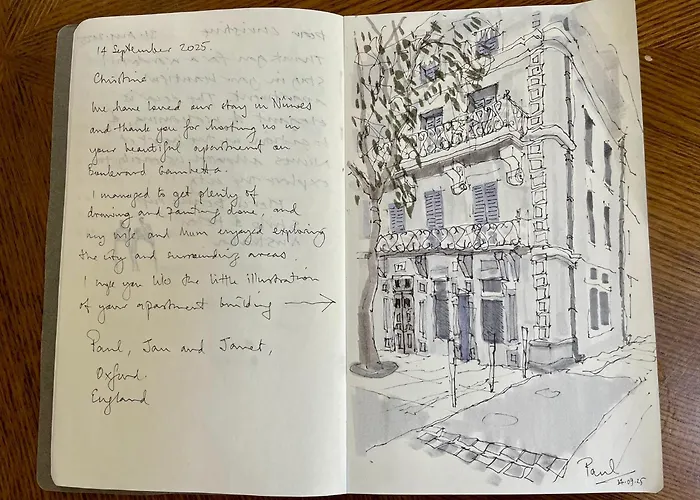 14 September 2025.
Christine
We have loved our stay in Nîmes
and thank you for hosting us in
your beautiful apartment on
Boulevard Gambetta.
I managed to get plenty of
drawing and painting done, and
my wife and Mum enjoyed exploring
the city and surrounding areas.
I hope you like the little illustration
of your apartment building →
Paul, Jan and Janet,
Oxford.
England
Paul
14.09.25